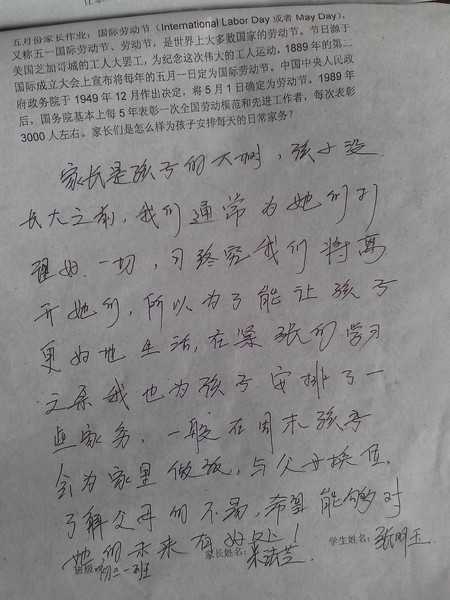 五月份家长作业：国际劳动节（International Labor Day 或者 May Day），
又称五一国际劳动节、劳动节，是世界上大多数国家的劳动节。节日源于
美国芝加哥城的工人大罢工，为纪念这次伟大的工人运动，1889年的第二
国际成立大会上宣布将每年的五月一日定为国际劳动节。中国中央人民政
府政务院于 1949 年 12 月作出决定，将 5 月 1 日确定为劳动节。1989 年
后，国务院基本上每 5 年表彰一次全国劳动模范和先进工作者，每次表彰
3000 人左右。家长们是怎么样为孩子安排每天的日常家务？
家长是孩子的大树，孩子没
长大之前，我们通常为她们打
理好一切，可终究我们将离
开她们，所以为了能让孩子
更好地生活，在紧张的学习
之余我也为孩子安排了一
些家务，一般在周末孩子
会为家里做饭，与父母换位，
了解父母的不易，希望能够对
她们未来有好处！
班级：初三一班 家长姓名： 学生姓名：张明玉